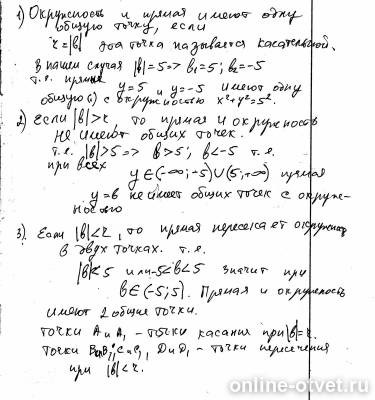 1) Окружность и прямая имеют одну
общую точку, если
r=|b| эта точка называется касательной.
В нашем случае |b|=5=> b₁=5; b₂=-5
т.е. прямые y=5 и y=-5 имеют одну
общую с окружностью x²+y²=5².
2) Если |b|>r, то прямая и окружность
не имеют общих точек.
т.е. |b|>5 => b>5; b<-5 т.е.
при всех y∈(-∞;-5)∪(5;+∞) прямая
y=b не имеет общих точек с окруж-
ностью
3) Если |b|<r, то прямая пересекает окружность
в двух точках. т.е.
|b|<5 или -5<b<5 значит при
b∈(-5;5). Прямая и окружность
имеют 2 общие точки.
точки A и A₁ - точки касания при |b|=r.
точки B и B₁; C и C₁, D и D₁ - точки пересечения
при |b|<r.
online-otvet.ru